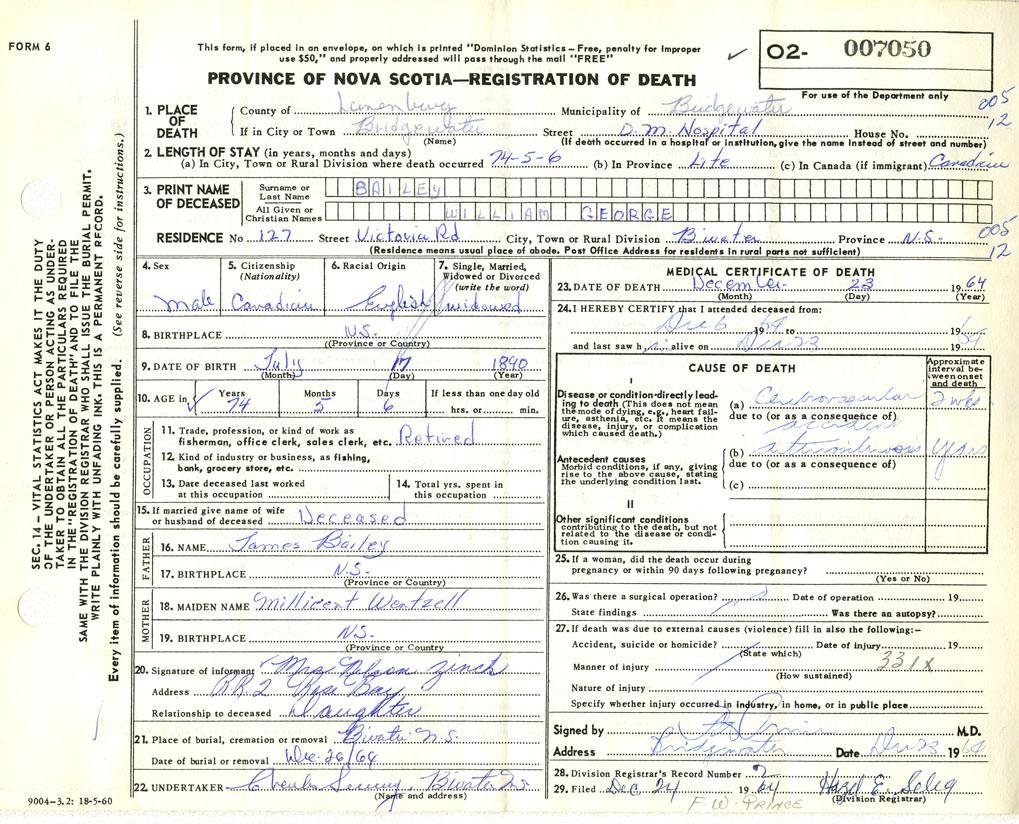 FORM 6
This form, if placed in an envelope, on which is printed "Dominion Statistics – Free, penalty for improper
use $50," and properly addressed will pass through the mail "FREE"
PROVINCE OF NOVA SCOTIA—REGISTRATION OF DEATH
✓ O2- 007050
For use of the Department only
005
12
1. PLACE OF DEATH
County of Lunenburg Municipality of Bridgewater
If in City or Town Bridgewater Street D.M. Hospital House No.
(Name) (If death occurred in a hospital or institution, give the name instead of street and number)
2. LENGTH OF STAY (in years, months and days)
(a) In City, Town or Rural Division where death occurred 74-5-6 (b) In Province Life (c) In Canada (if immigrant) Canadian
3. PRINT NAME OF DECEASED
Surname or Last Name BAILEY
All Given or Christian Names WILLIAM GEORGE
RESIDENCE No 127 Street Victoria Rd City, Town or Rural Division B'water Province N.S-
(Residence means usual place of abode. Post Office Address for residents in rural parts not sufficient)
005
12
4. Sex Male
5. Citizenship (Nationality) Canadian
6. Racial Origin English
7. Single, Married, Widowed or Divorced (write the word) widowed
8. BIRTHPLACE N.S.
(Province or Country)
9. DATE OF BIRTH July 17 1890
(Month) (Day) (Year)
10. AGE in ✓ Years 74 Months 5 Days 6 If less than one day old hrs. or min.
OCCUPATION
11. Trade, profession, or kind of work as
fisherman, office clerk, sales clerk, etc. Retired
12. Kind of industry or business, as fishing,
bank, grocery store, etc.
13. Date deceased last worked
at this occupation
14. Total yrs. spent in
this occupation
15. If married give name of wife
or husband of deceased Deceased
FATHER
16. NAME James Bailey
17. BIRTHPLACE N.S-
(Province or Country)
MOTHER
18. MAIDEN NAME Millicent Wentzell
19. BIRTHPLACE N.S-
(Province or Country
20. Signature of informant Mrs Nelson Zinck
Address R.R.2 Rose Bay
Relationship to deceased Daughter
21. Place of burial, cremation or removal B'water N.S.
Date of burial or removal Dec. 26/64
22. UNDERTAKER B'water N.S.
(Name and address)
MEDICAL CERTIFICATE OF DEATH
23. DATE OF DEATH December 23 1964
(Month) (Day) (Year)
24. I HEREBY CERTIFY that I attended deceased from:
Dec 6 19 to 19
and last saw him alive on Dec 23 19
CAUSE OF DEATH
Approximate interval between onset and death
I
Disease or condition directly leading to death (This does not mean
the mode of dying, e.g., heart failure, asthenia, etc. It means the
disease, injury, or complication
which caused death.)
(a) Cerebrovascular 2 wks
due to (or as a consequence of)
accident
Antecedent causes
Morbid conditions, if any, giving
rise to the above cause, stating
the underlying condition last.
(b) years
due to (or as a consequence of)
(c)
II
Other significant conditions
contributing to the death, but not
related to the disease or condition causing it.
25. If a woman, did the death occur during
pregnancy or within 90 days following pregnancy?
(Yes or No)
26. Was there a surgical operation? Date of operation 19
State findings Was there an autopsy?
27. If death was due to external causes (violence) fill in also the following:–
Accident, suicide or homicide? Date of injury 19
(State which) 331X
Manner of injury
(How sustained)
Nature of injury
Specify whether injury occurred in industry, in home, or in public place
Signed by M.D.
Address Bridgewater Date Dec 23 1964
28. Division Registrar's Record Number
29. Filed Dec 24 1964 Hazel E. Selig
(Division Registrar)
F.W. PRINCE
9004–3.2: 18-5-60
SEC. 14 – VITAL STATISTICS ACT MAKES IT THE DUTY
OF THE UNDERTAKER OR PERSON ACTING AS UNDER-
TAKER TO OBTAIN ALL THE PARTICULARS REQUIRED
IN THE "REGISTRATION OF DEATH" AND TO FILE THE
SAME WITH THE DIVISION REGISTRAR WHO SHALL ISSUE THE BURIAL PERMIT.
WRITE PLAINLY WITH UNFADING INK. THIS IS A PERMANENT RECORD.
Every item of information should be carefully supplied. (See reverse side for instructions.)